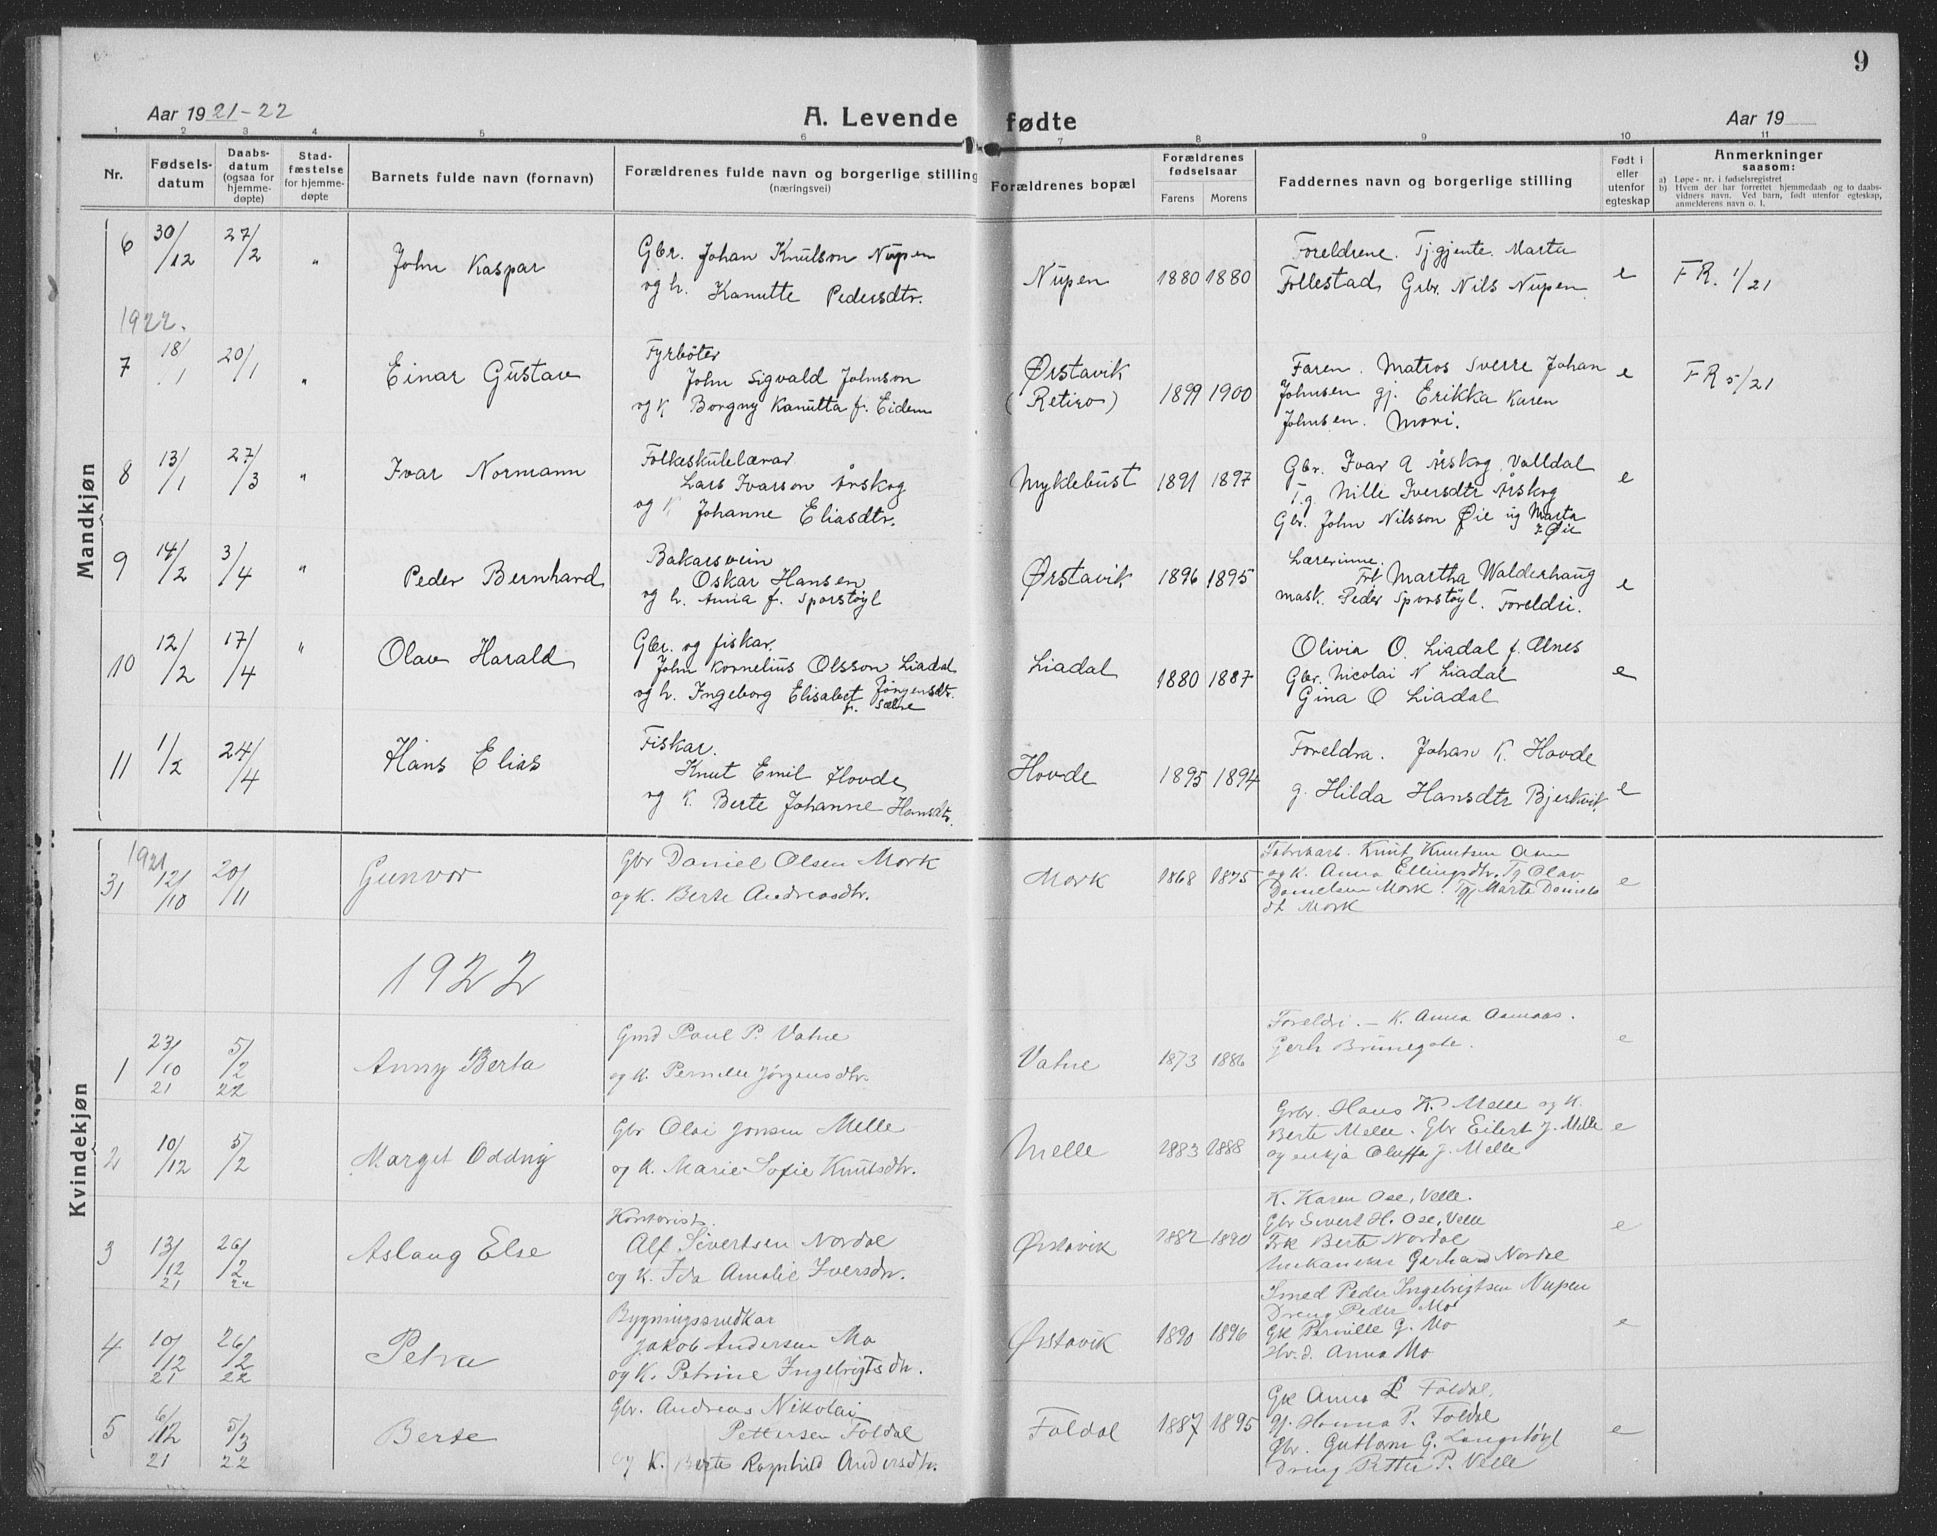 9
Aar 1921-22
A. Levende fødte
Aar 19
1 2 3 4 5 6 7 8 9 10 11
Nr.
Fødsels-
datum
Daabs-
datum
(ogsaa for
hjemme-
døpte)
Stad-
fæstelse
for hjemme-
døpte
Barnets fulde navn (fornavn)
Forældrenes fulde navn og borgerlige stilling
(næringsvei)
Forældrenes bopæl
Forældrenes
fødselsaar
Farens Morens
Faddernes navn og borgerlige stilling
Født i
eller
utenfor
egteskap
Anmerkninger
saasom:
a) Løpe-nr. i fødselsregistret
b) Hvem der har forrettet hjemmedaab og to daabs-
vidners navn. Ved barn, født utenfor egteskap,
anmelderens navn o. l.
Mandkjøn
6 30/12 27/2 " John Kaspar
Gbr. Johan Knutson Nupen
og h. Kanutte Pedersdtr.
Nupen 1880 1880
Foreldrene. Tj.gjente. Marta
Follestad, Gbr. Nils Nupen
e FR. 1/21
1922.
7 18/1 20/1 " Einar Gustav
Fyrbøter
John Sigvald Johnson
og K Borgny Kanutta f. Eidem
Ørstavik
(Retiro) 1899 1900
Faren. Matros Sverre Johan
Johnsen gj. Erikka Karen
Johnsen. Mori.
e FR 5/21
8 13/1 27/3 " Ivar Normann
Folkeskulelærar
Lars Ivarson Årskog
og K Johanne Eliasdtr.
Myklebust 1891 1897
Gbr. Ivar A Årskog, Valldal
T.g Nille Iversdtr Årskog
Gbr. John Nilsson Øie og Marta
J Øie
e
9 14/2 3/4 " Peder Bernhard
Bakarsvein
Oskar Hansen
og h. Anna f. Sporstøyl
Ørstavik 1896 1895
Lærerinne.
Frk Martha Walderhaug
mask. Peder Sporstøyl. Foreldri.
e
10 12/2 17/4 " Olav Harald
Gbr. og fiskar.
John Kornelius Olsson Liadal
og h. Ingeborg Elisabet Jørgensdtr.
f. Sætre
Liadal 1880 1887
Olivia O. Liadal f. Alnes
Gbr. Nicolai N Liadal
Gina O Liadal
e
11 1/2 24/4 Hans Elias
Fiskar.
Knut Emil Hovde
og K. Berte Johanne Hansdtr.
Hovde 1895 1894
Foreldra. Johan K. Hovde
g. Hilda Hansdtr Bjerkvik
e
Kvindekjøn
1921
31 12/10 20/11 Gunvor
Gbr Daniel Olsen Mork
og K. Berte Andreasdtr.
Mork 1868 1875
Fabrikarb. Knut Knutsen Aam
og K. Anna Ellingsdtr. Tg Olav
Danielsen Mork. Tg Marta Daniels
dt Mork
e
1922
1 23/10 21 5/2 22 Anny Berta
Gmd Paul P. Vatne
og K. Pernille Jørgensdtr.
Vatne 1873 1886
Foreldri. — K. Anna Aamaas.
Gerh Brunegote.
e
2 10/12 5/2 Margit Oddny
Gbr Olai Jonsen Melle
og K. Marie Sofie Knutsdtr.
Melle 1883 1888
Gbr. Hans K. Melle og K.
Berte Melle. Gbr Eilert J. Melle
og enkja Oluffa J. Melle
e
3 13/12 21 26/2 22 Aslaug Else
Kontorist.
Alf Sivertsen Nordal
og K. Ida Amalie Iversdtr.
Ørstavik 1882 1890
K. Karen Ose, Velle.
Gbr Sivert H. Ose, Velle
Frk Berte Nordal
Mekaniker Gerhard Nordal
e
4 10/12 21 26/2 22 Petra
Bygningssnedkar
Jakob Andersen Mo
og K. Petrine Ingebrigtsdtr.
Ørstavik 1890 1896
Smed Peder Ingebrigtsen Nupen
Dreng Peder Mo
Gk Pernille G. Mo
Hv.d. Anna Mo
e
5 6/12 21 5/3 22 Berte
Gbr. Andreas Nikolai
Pettersen Foldal
og K. Berte Ragnhild Andersdtr.
Foldal 1887 1895
Gk Anna L Foldal.
Gj. Hanna P. Foldal
Gbr. Guttorm G. Langstøyl
Dreng Petter P. Velle
e